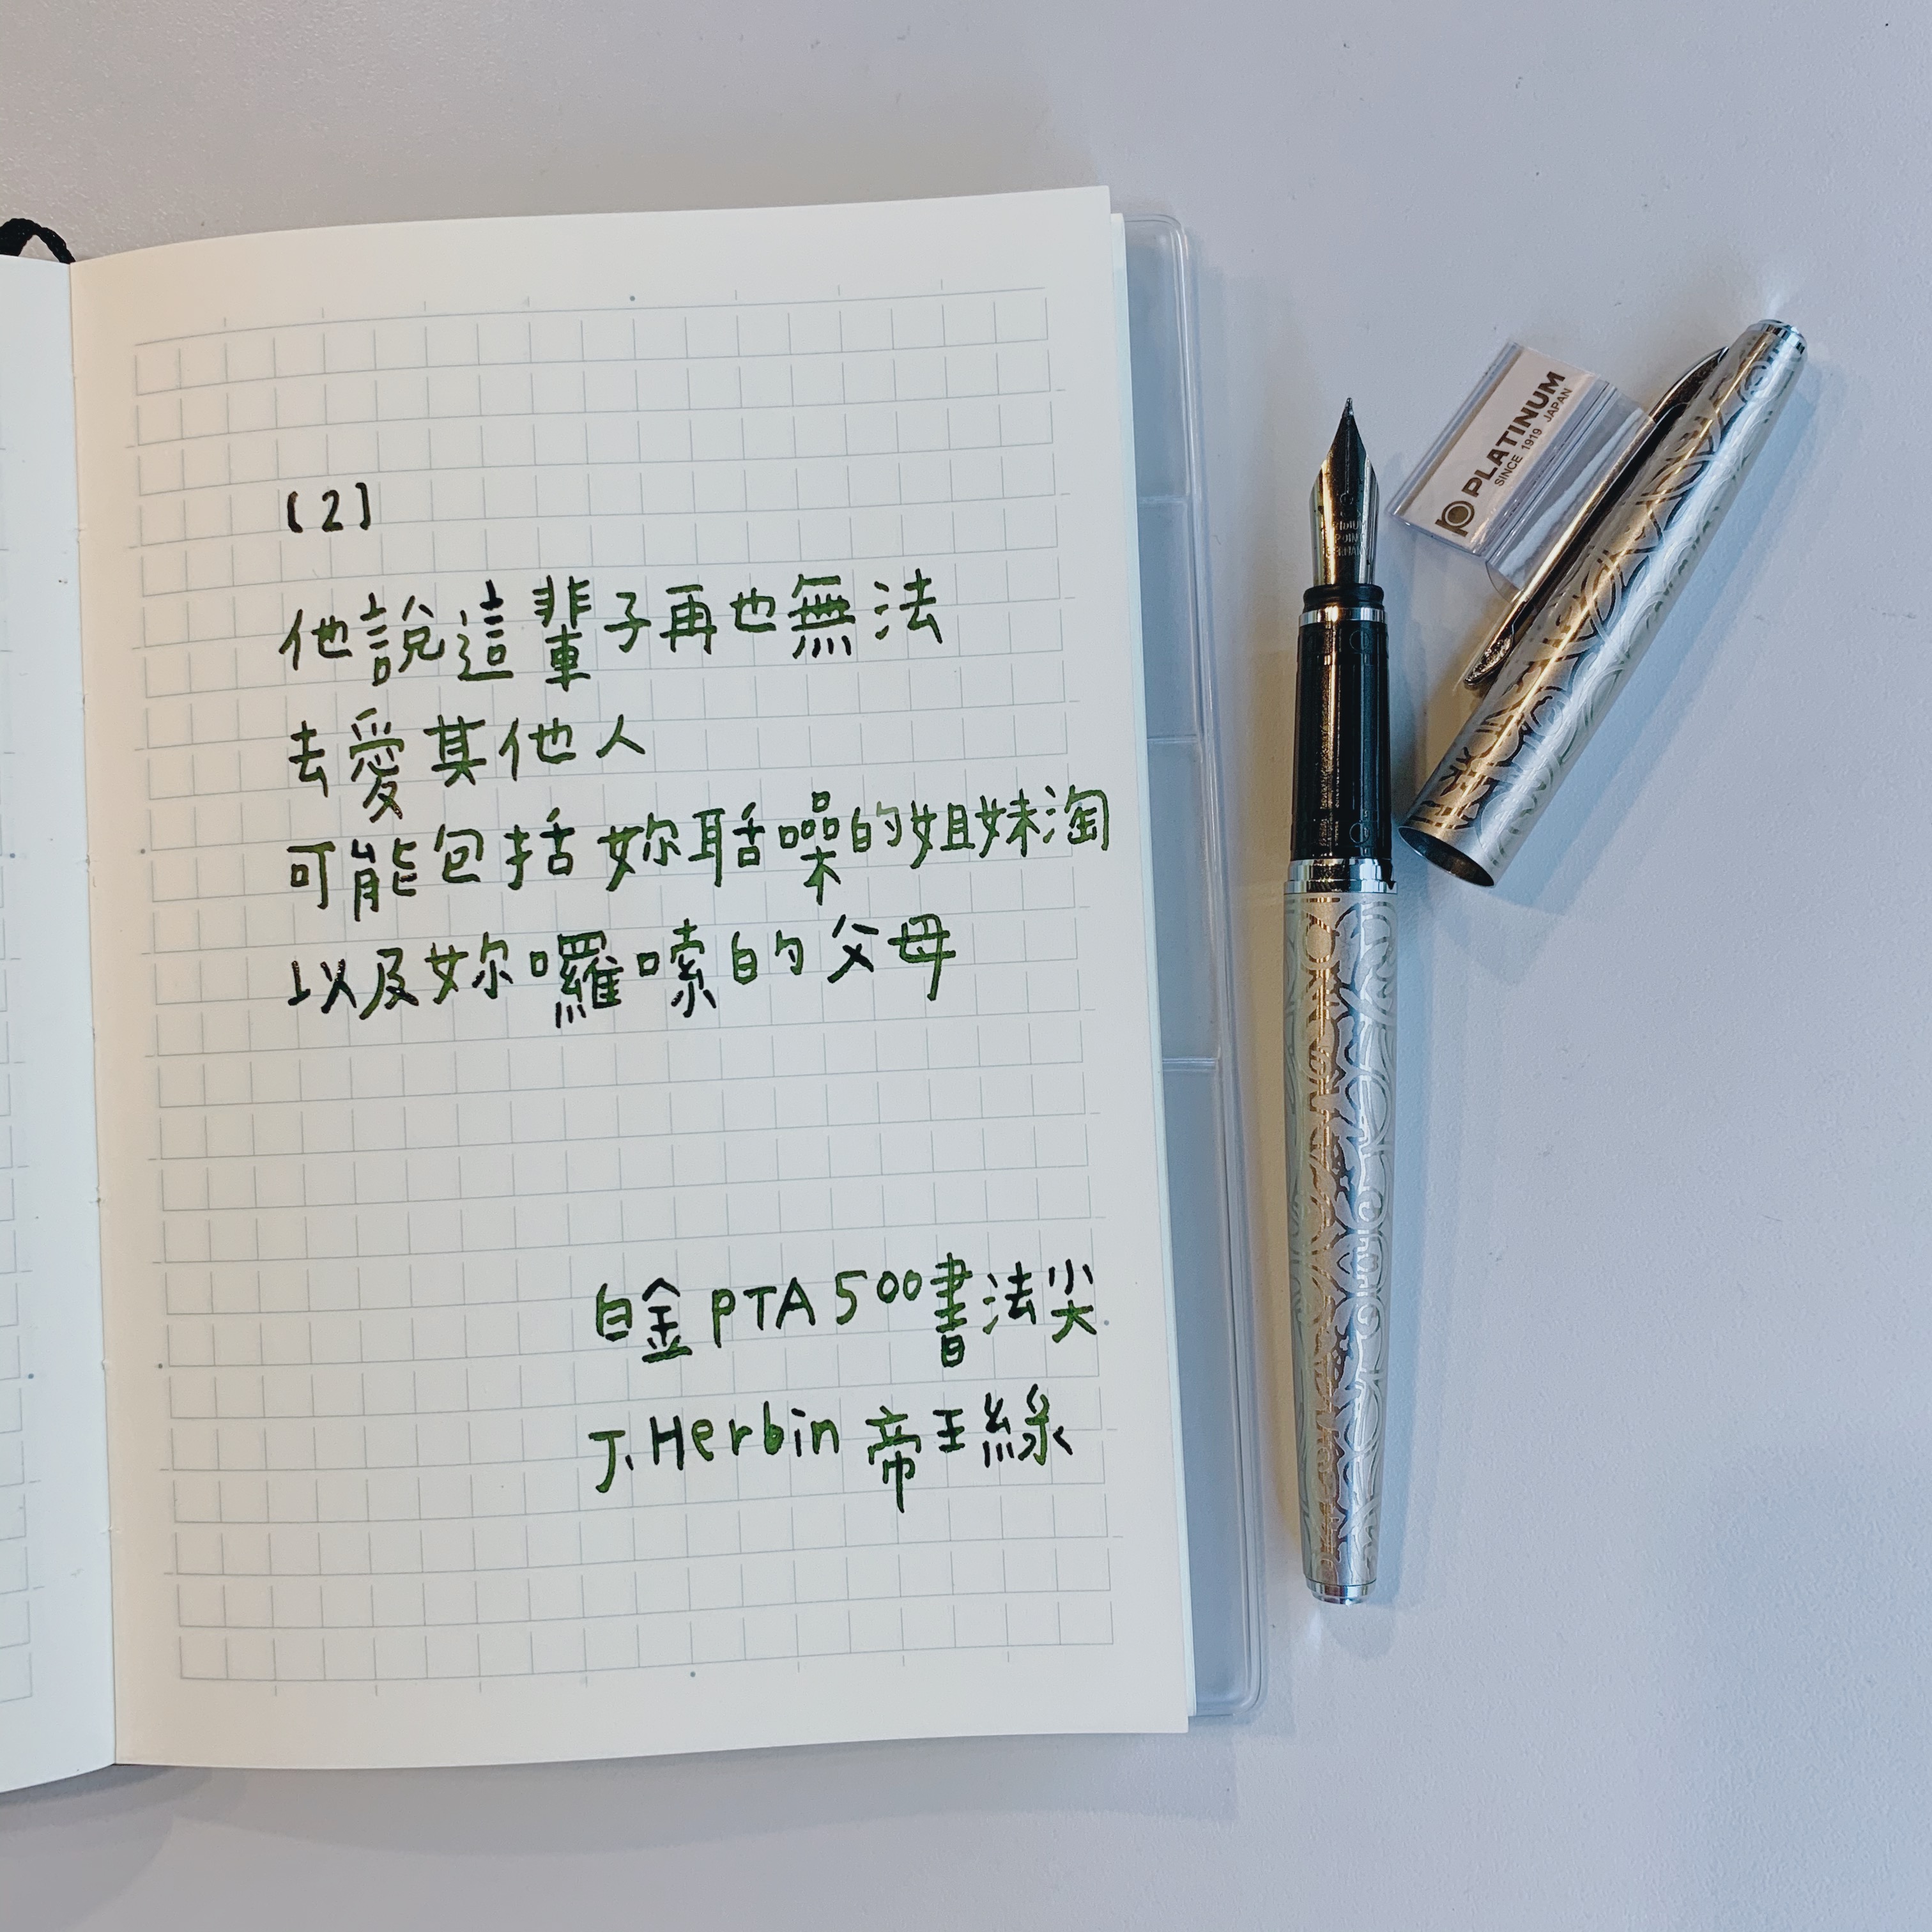 〔2〕
他說這輩子再也無法
去愛其他人
可能包括妳聒噪的姐妹淘
以及妳囉嗦的父母
白金 PTA 500書法尖
J. Herbin 帝王綠
PLATINUM
SINCE 1919 JAPAN
IRIDIUM
POINT
GERMANY